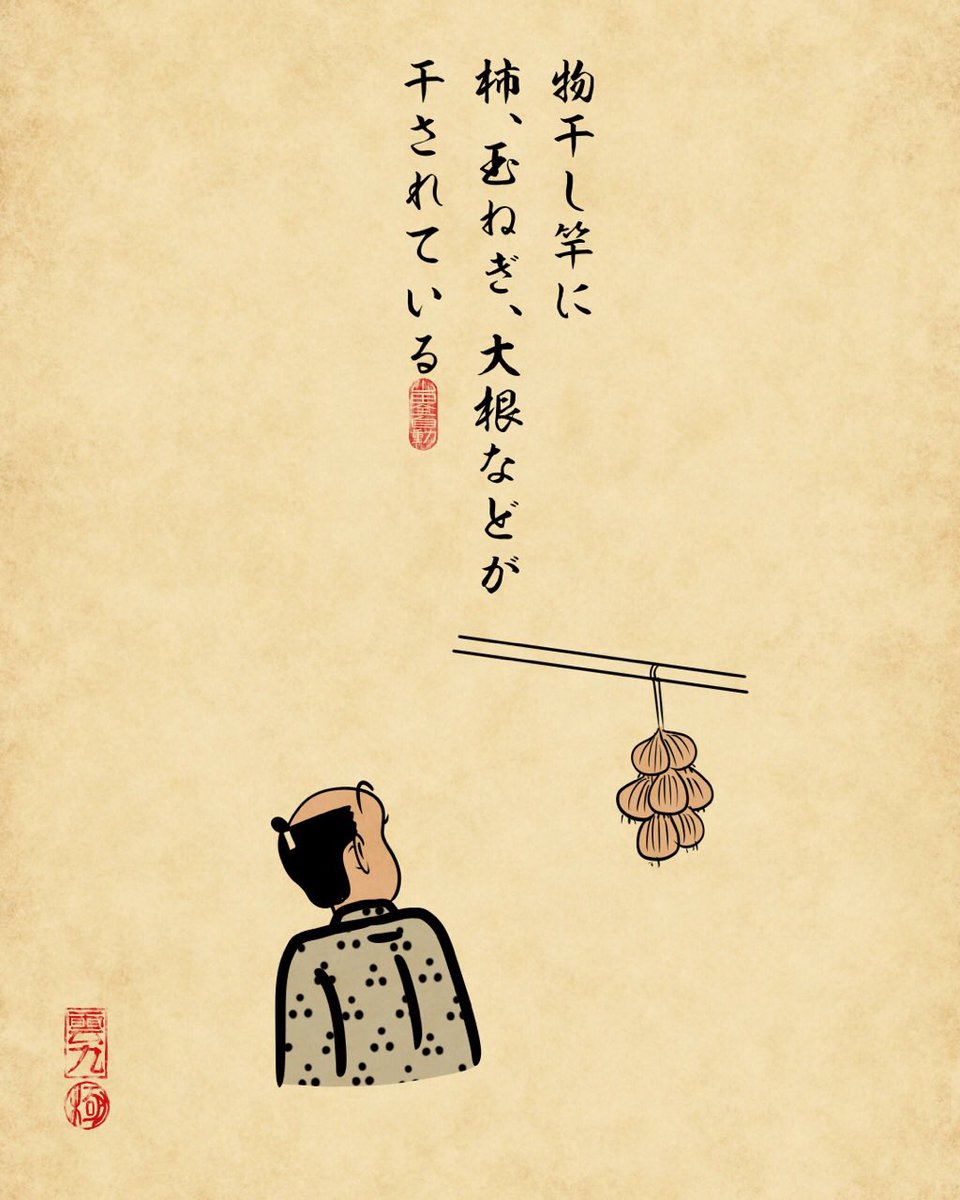 物干し竿に
柿、玉ねぎ、大根などが
干されている
雲九